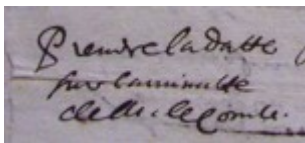 Prendre la datte
sur la minutte
de M. le Comte.